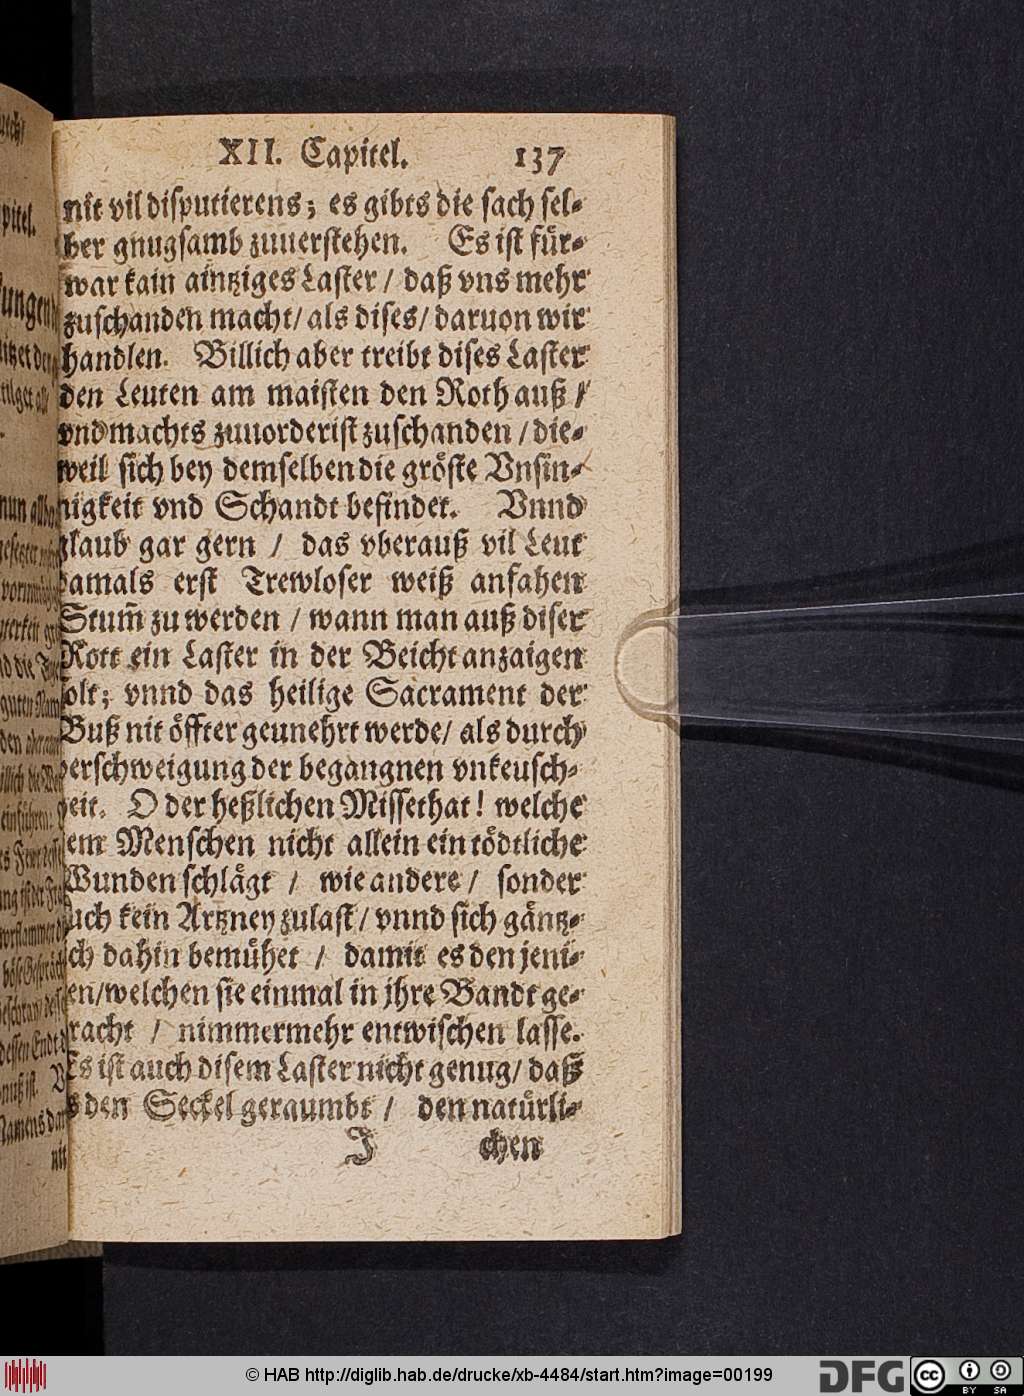 XII. Capitel. 137
nit vil disputierens; es gibts die sach sel-
ber gnugsamb zuuerstehen. Es ist für-
war kain aintziges Laster / daß vns mehr
zuschanden macht / als dises / daruon wir
handlen. Billich aber treibt dises Laster
den Leuten am maisten den Roth auß /
vnd machts zuuorderist zuschanden / die-
weil sich bey demselben die gröste Vnsin-
nigkeit vnd Schandt befindet. Vnnd
glaub gar gern / das vberauß vil Leut
damals erst Trewloser weiß anfahen
Stum̃ zu werden / wann man auß diser
Rott ein Laster in der Beicht anzaigen
solt; vnnd das heilige Sacrament der
Buß nit öffter geunehrt werde / als durch
verschweigung der begangnen vnkeusch-
heit. O der heßlichen Missethat! welche
dem Menschen nicht allein ein tödtliche
Wunden schlägt / wie andere / sonder
auch kein Artzney zulast / vnnd sich gäntz-
lich dahin bemühet / damit es den jeni-
gen / welchen sie einmal in jhre Bandt ge-
bracht / nimmermehr entwischen lasse.
Es ist auch disem Laster nicht genug / daß
es den Seckel geraumbt / den natürli-
J chen
© HAB http://diglib.hab.de/drucke/xb-4484/start.htm?image=00199
DFG
cc BY SA